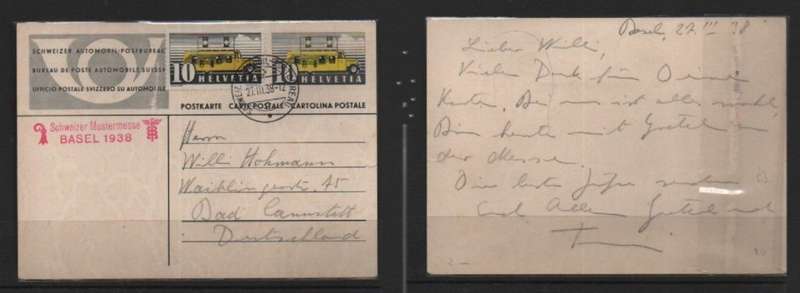 SCHWEIZER AUTOMOBIL-POSTBUREAU
BUREAU DE POSTE AUTOMOBILE SUISSE
UFFICIO POSTALE SVIZZERO SU AUTOMOBILE
10 HELVETIA
10 HELVETIA
27.III.38-12
POSTKARTE CARTE POSTALE CARTOLINA POSTALE
Schweizer Mustermesse
BASEL 1938
Herrn
Willi Hohmann
Waiblingerstr. 15
Bad Cannstatt
Deutschland
Basel, 27 III 38
Lieber Willi,
Vielen Dank für Deine
Karten. Bei uns ist alles wohl,
Bin heute mit Gretel an
der Messe.
Die besten Grüsse senden Dir
und Allen Gretel und